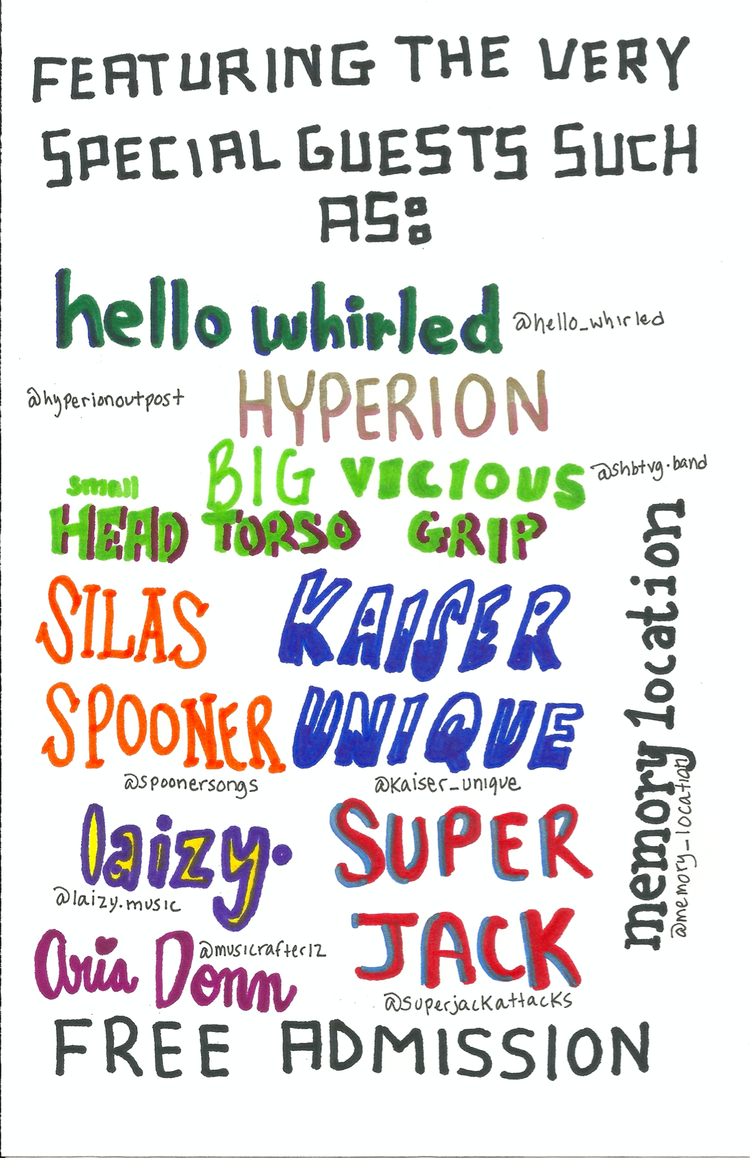 FEATURING THE VERY
SPECIAL GUESTS SUCH
AS:
hello whirled @hello_whirled
@hyperionoutpost HYPERION
small BIG VICIOUS @shbtvg.band
HEAD TORSO GRIP
SILAS
SPOONER
@spoonersongs
KAISER
UNIQUE
@kaiser_unique
memory location
@memory_location
laizy.
@laizy.music
SUPER
JACK
@superjackattacks
Aria Donn @musicrafter12
FREE ADMISSION